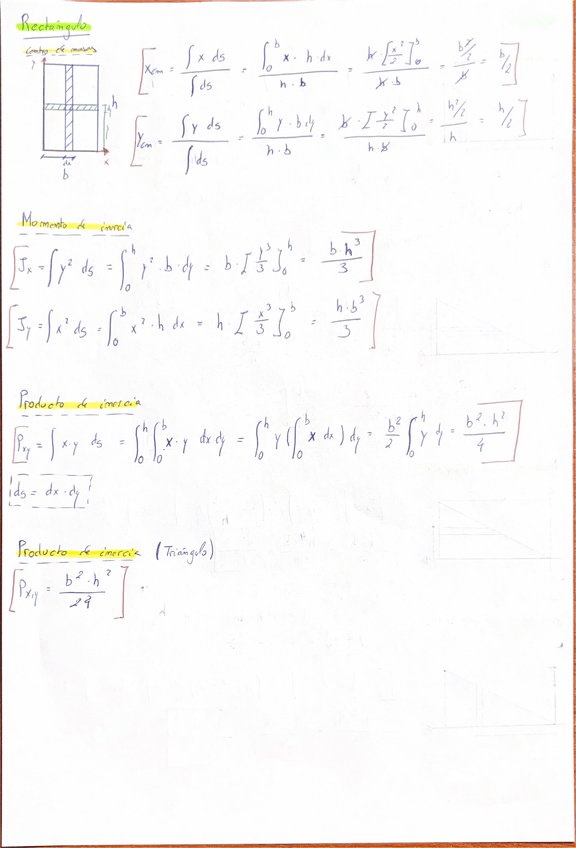 Rectángulo
Centro de masas
y
h
x
dx
b
Xcm = ∫ x ds / ∫ ds = ∫₀ᵇ x · h dx / h · b = h · [x²/2]₀ᵇ / h · b = b²/2 / b = b/2
Ycm = ∫ y ds / ∫ ds = ∫₀ʰ y · b dy / h · b = b · [y²/2]₀ʰ / h · b = h²/2 / h = h/2
Momento de inercia
Jx = ∫ y² ds = ∫₀ʰ y² · b · dy = b · [y³/3]₀ʰ = b · h³ / 3
Jy = ∫ x² ds = ∫₀ᵇ x² · h dx = h · [x³/3]₀ᵇ = h · b³ / 3
Producto de inercia
Pxy = ∫ x · y ds = ∫₀ʰ ∫₀ᵇ x · y dx dy = ∫₀ʰ y (∫₀ᵇ x dx) dy = b²/2 ∫₀ʰ y dy = b² · h² / 4
ds = dx · dy
Producto de inercia (Triángulo)
Pxy = b² · h² / 24